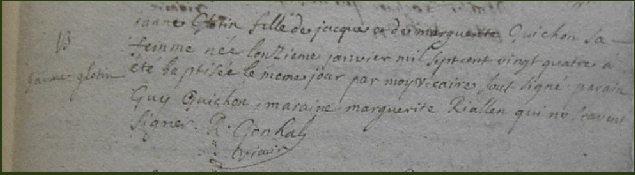 13
janne glotin
janne Glotin fille de jacque et de marguerite Guichon sa
femme née lonzieme janvier mil sept cent vingt quatre a
eté baptisée le meme jour par moy vicaire sous signé parain
Guy Guichon, maraine marguerite Riallen qui ne scavent
signer
vicaire